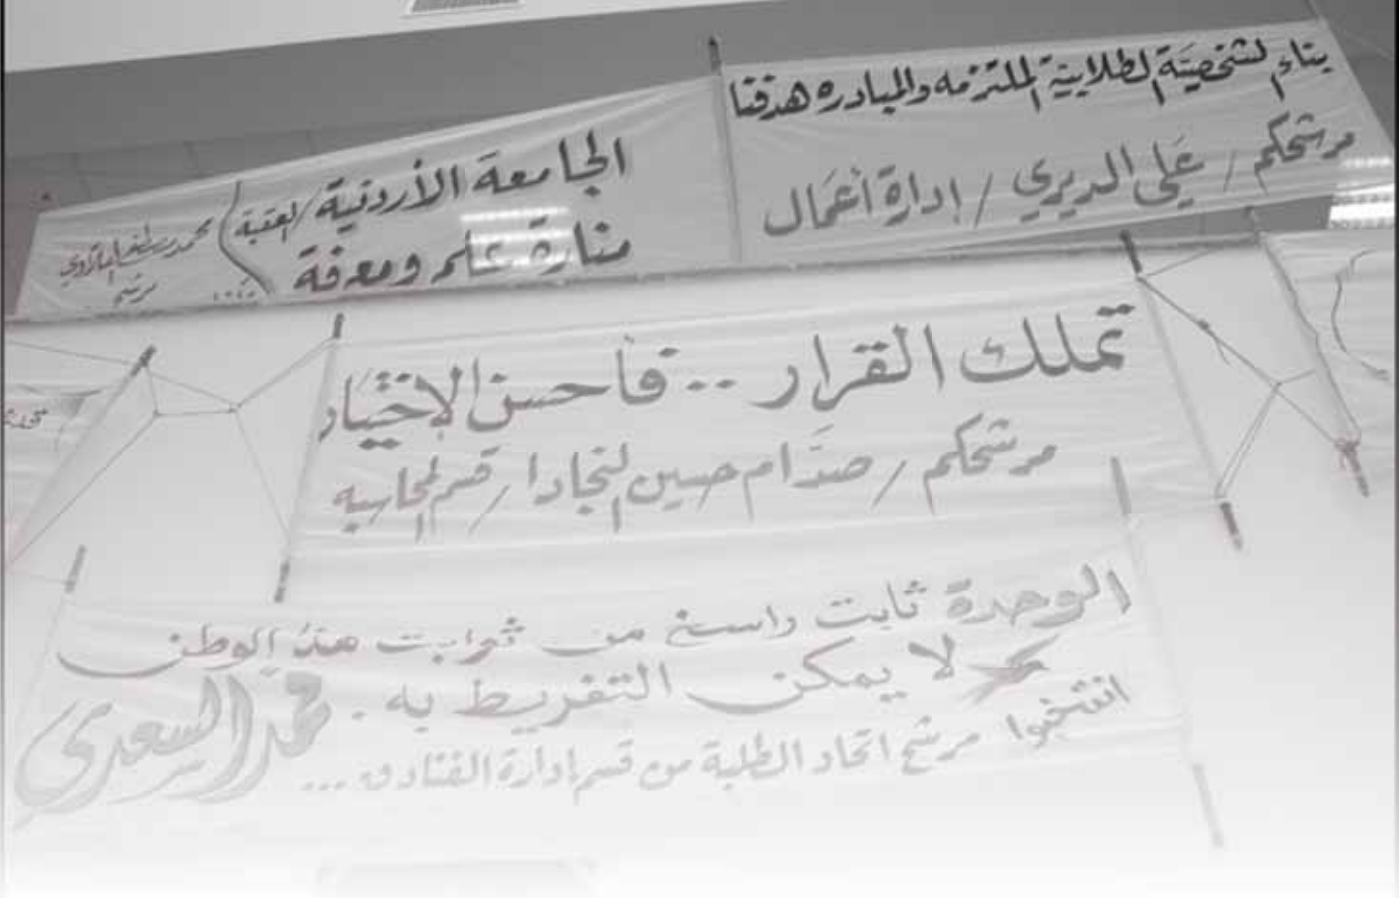 بناء الشخصية الطلابية الملتزمه والمبادره هدفنا
مرشحكم / علي الديري / إدارة أعمال
الجامعة الأردنية / العقبة
منارة علم ومعرفة
محمد مصطفى
مرشح
تملك القرار .. فأحسن الإختيار
مرشحكم / صدام حسين النجادا / قسم المحاسبه
الوحدة ثابت راسخ من ثوابت هذا الوطن
لا يمكن التفريط به .
محمد السعدي
انتخبوا مرشح اتحاد الطلبة من قسم إدارة الفنادق ...